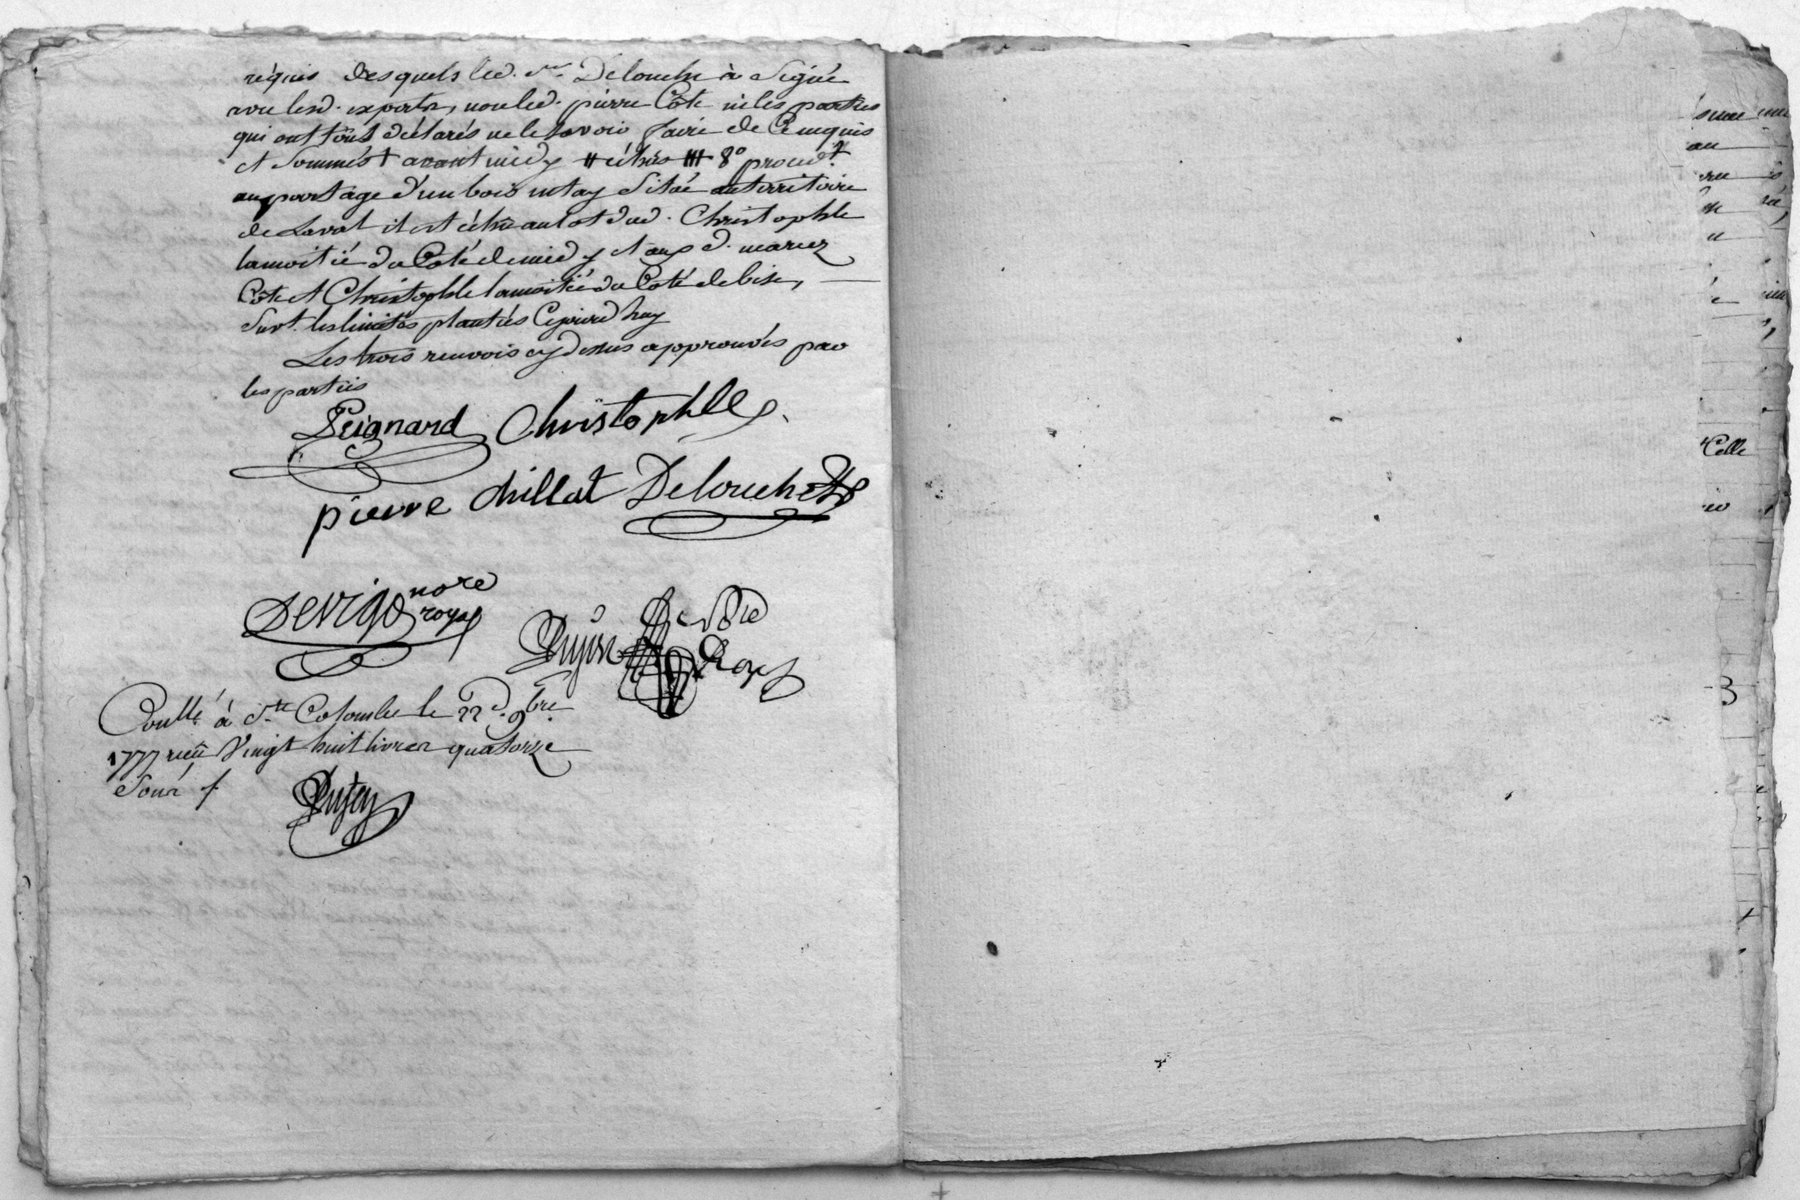 requis desquels led. Sr. Delouche à Signé
avec lesd. experts, non led. pierre Côte ni les parties
qui ont tous déclarés ne le Savoir faire de Ce enquis
et Sommés + avant midy # échus ## 8° proced.t
au partage d'un bois
de Laval il est échu au lot dud. Christophle
la moitié du Coté de midy et aux d. mariez
Côte et Christophle la moitié du Coté de bise,
Suivt. les limites plantées Cejourd'huy
Les trois renvois cy dessus approuvés par
les parties
Peignard Christophlle
pierre chillat Delouche
Devigo nore
royal
nore
Royal
Conllé à Ste Colombe le 22 d. 9bre
1777 reçu Vingt huit livres quatorze
Sous
Celle
3